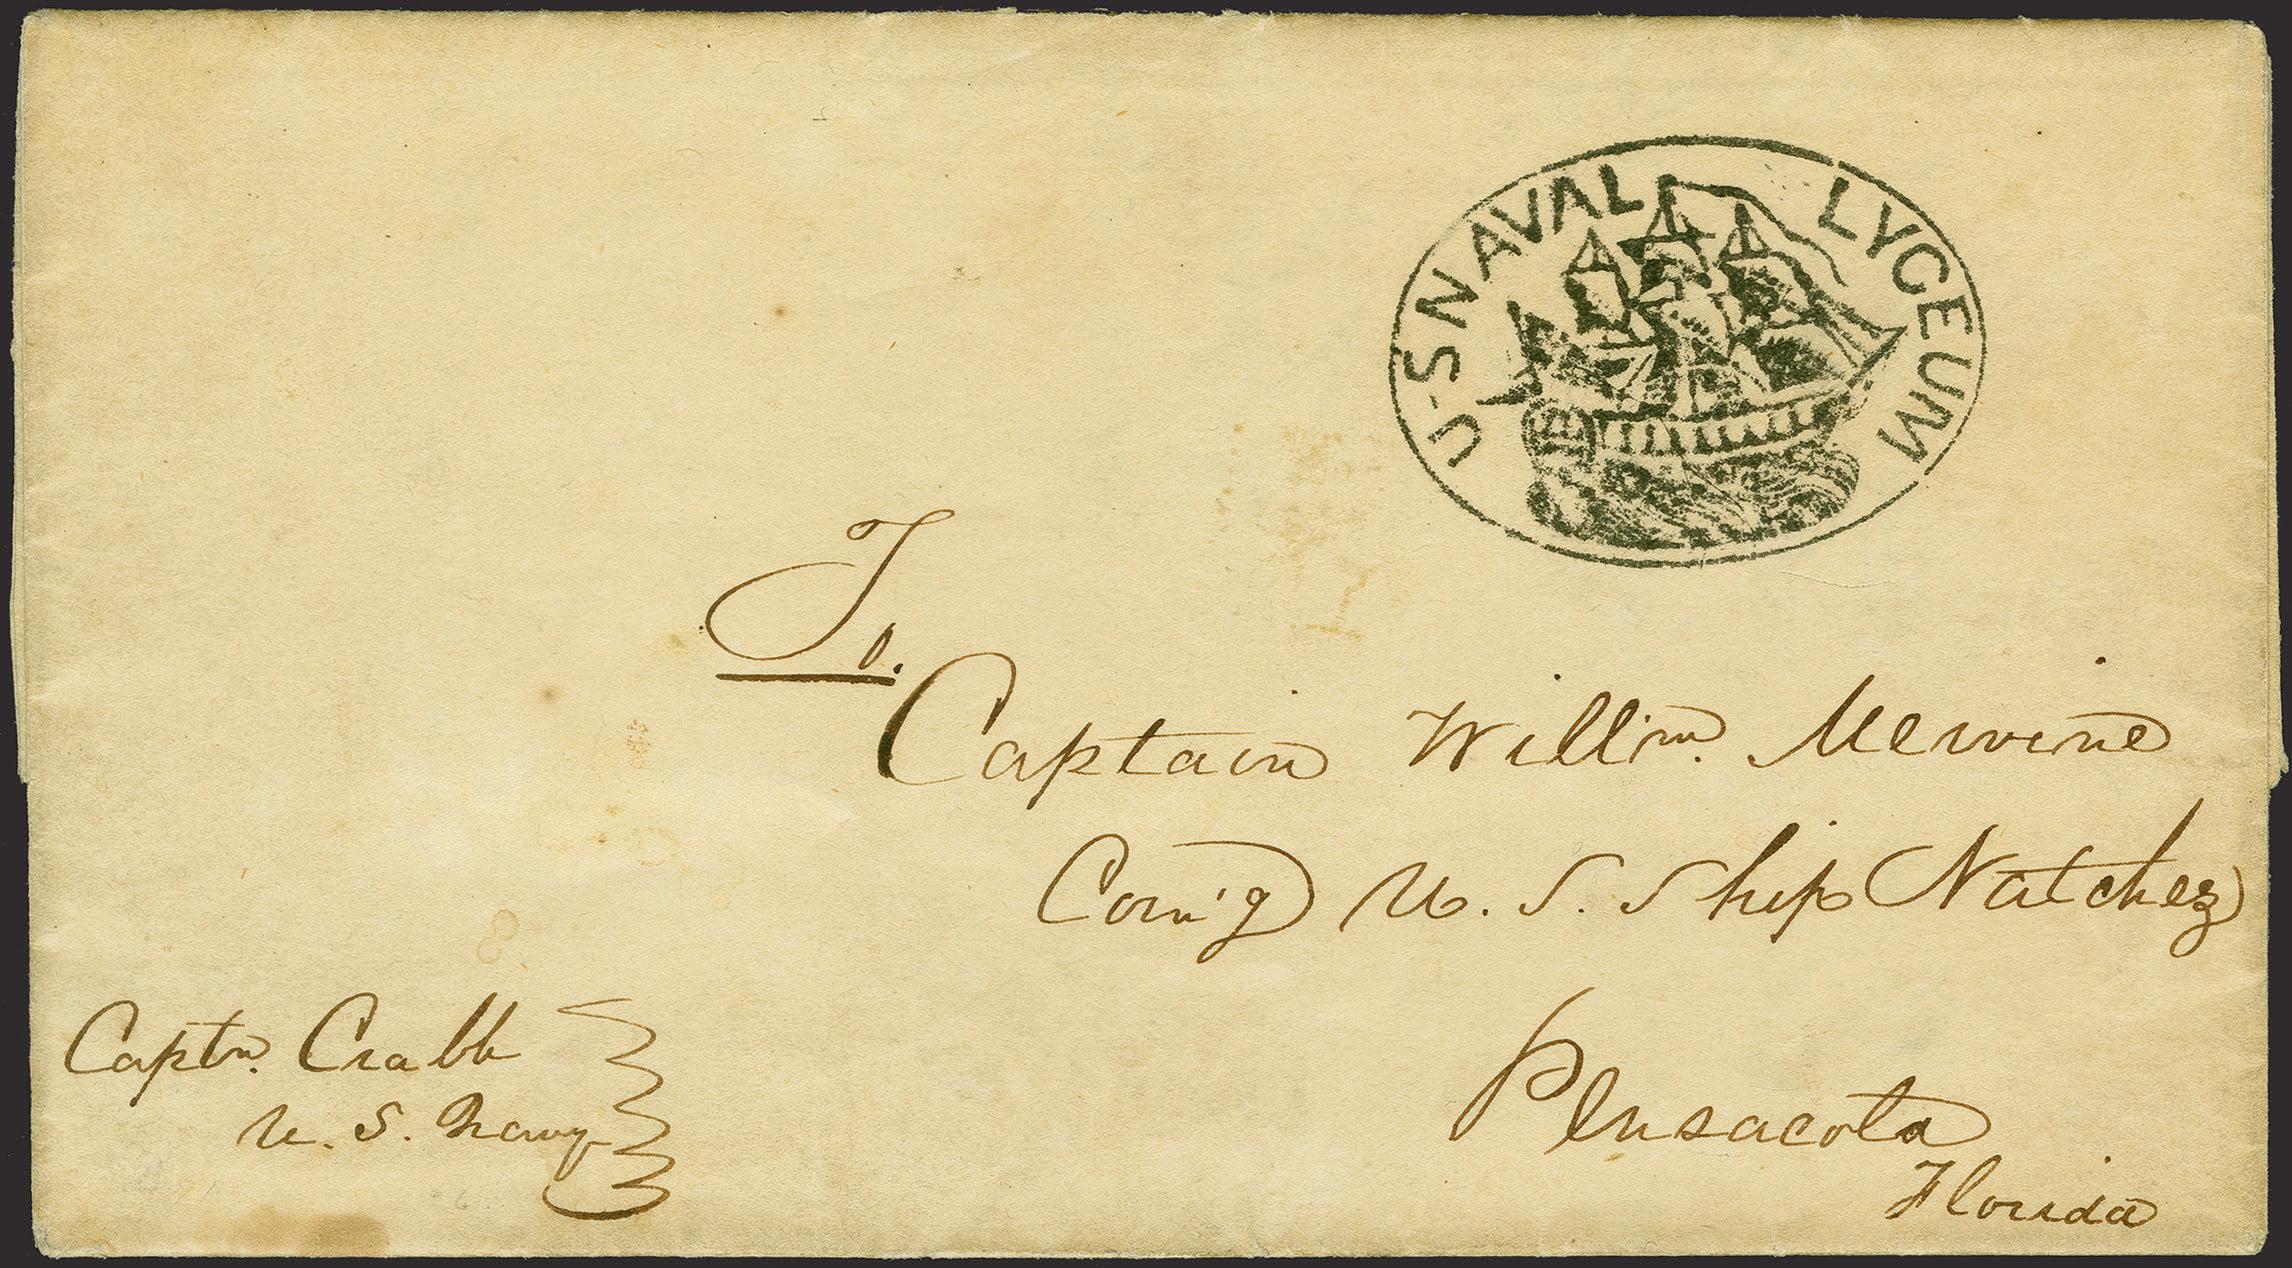 U-S NAVAL LYCEUM
To.
Captain Willm. Mervine
Com'g U. S. Ship Natchez
Pensacola
Florida
Captn. Crabb
U. S. Navy